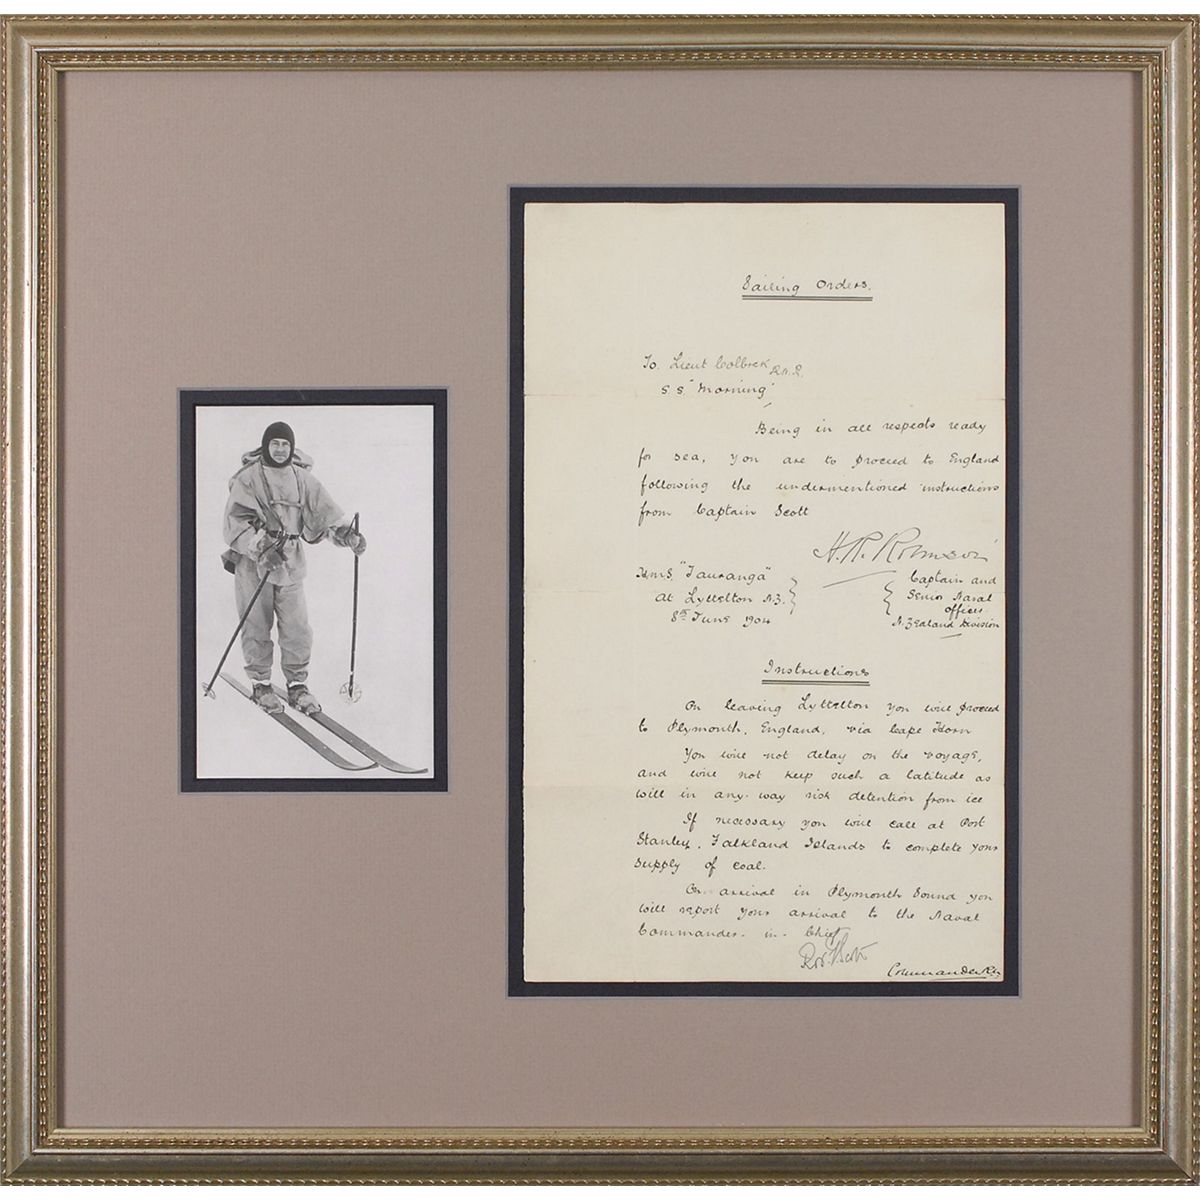 Sailing Orders.
To. Lieut Colbeck R.N.R.
S S "Morning"
Being in all respects ready
for sea, you are to proceed to England
following the undermentioned instructions
from Captain Scott
H. R. Robinson
H.M.S. "Tauranga"
at Lyttelton N.Z.
8th June 1904
Captain and
Senior Naval
officer.
N. Zealand Division
Instructions
On leaving Lyttelton you will proceed
to Plymouth, England, via Cape Horn
You will not delay on the voyage,
and will not keep such a latitude as
will in any way risk detention from ice
If necessary you will call at Port
Stanley, Falkland Islands to complete your
supply of coal.
On arrival in Plymouth Sound you
will report your arrival to the Naval
Commander-in-Chief
Robt F Scott
Commander RN